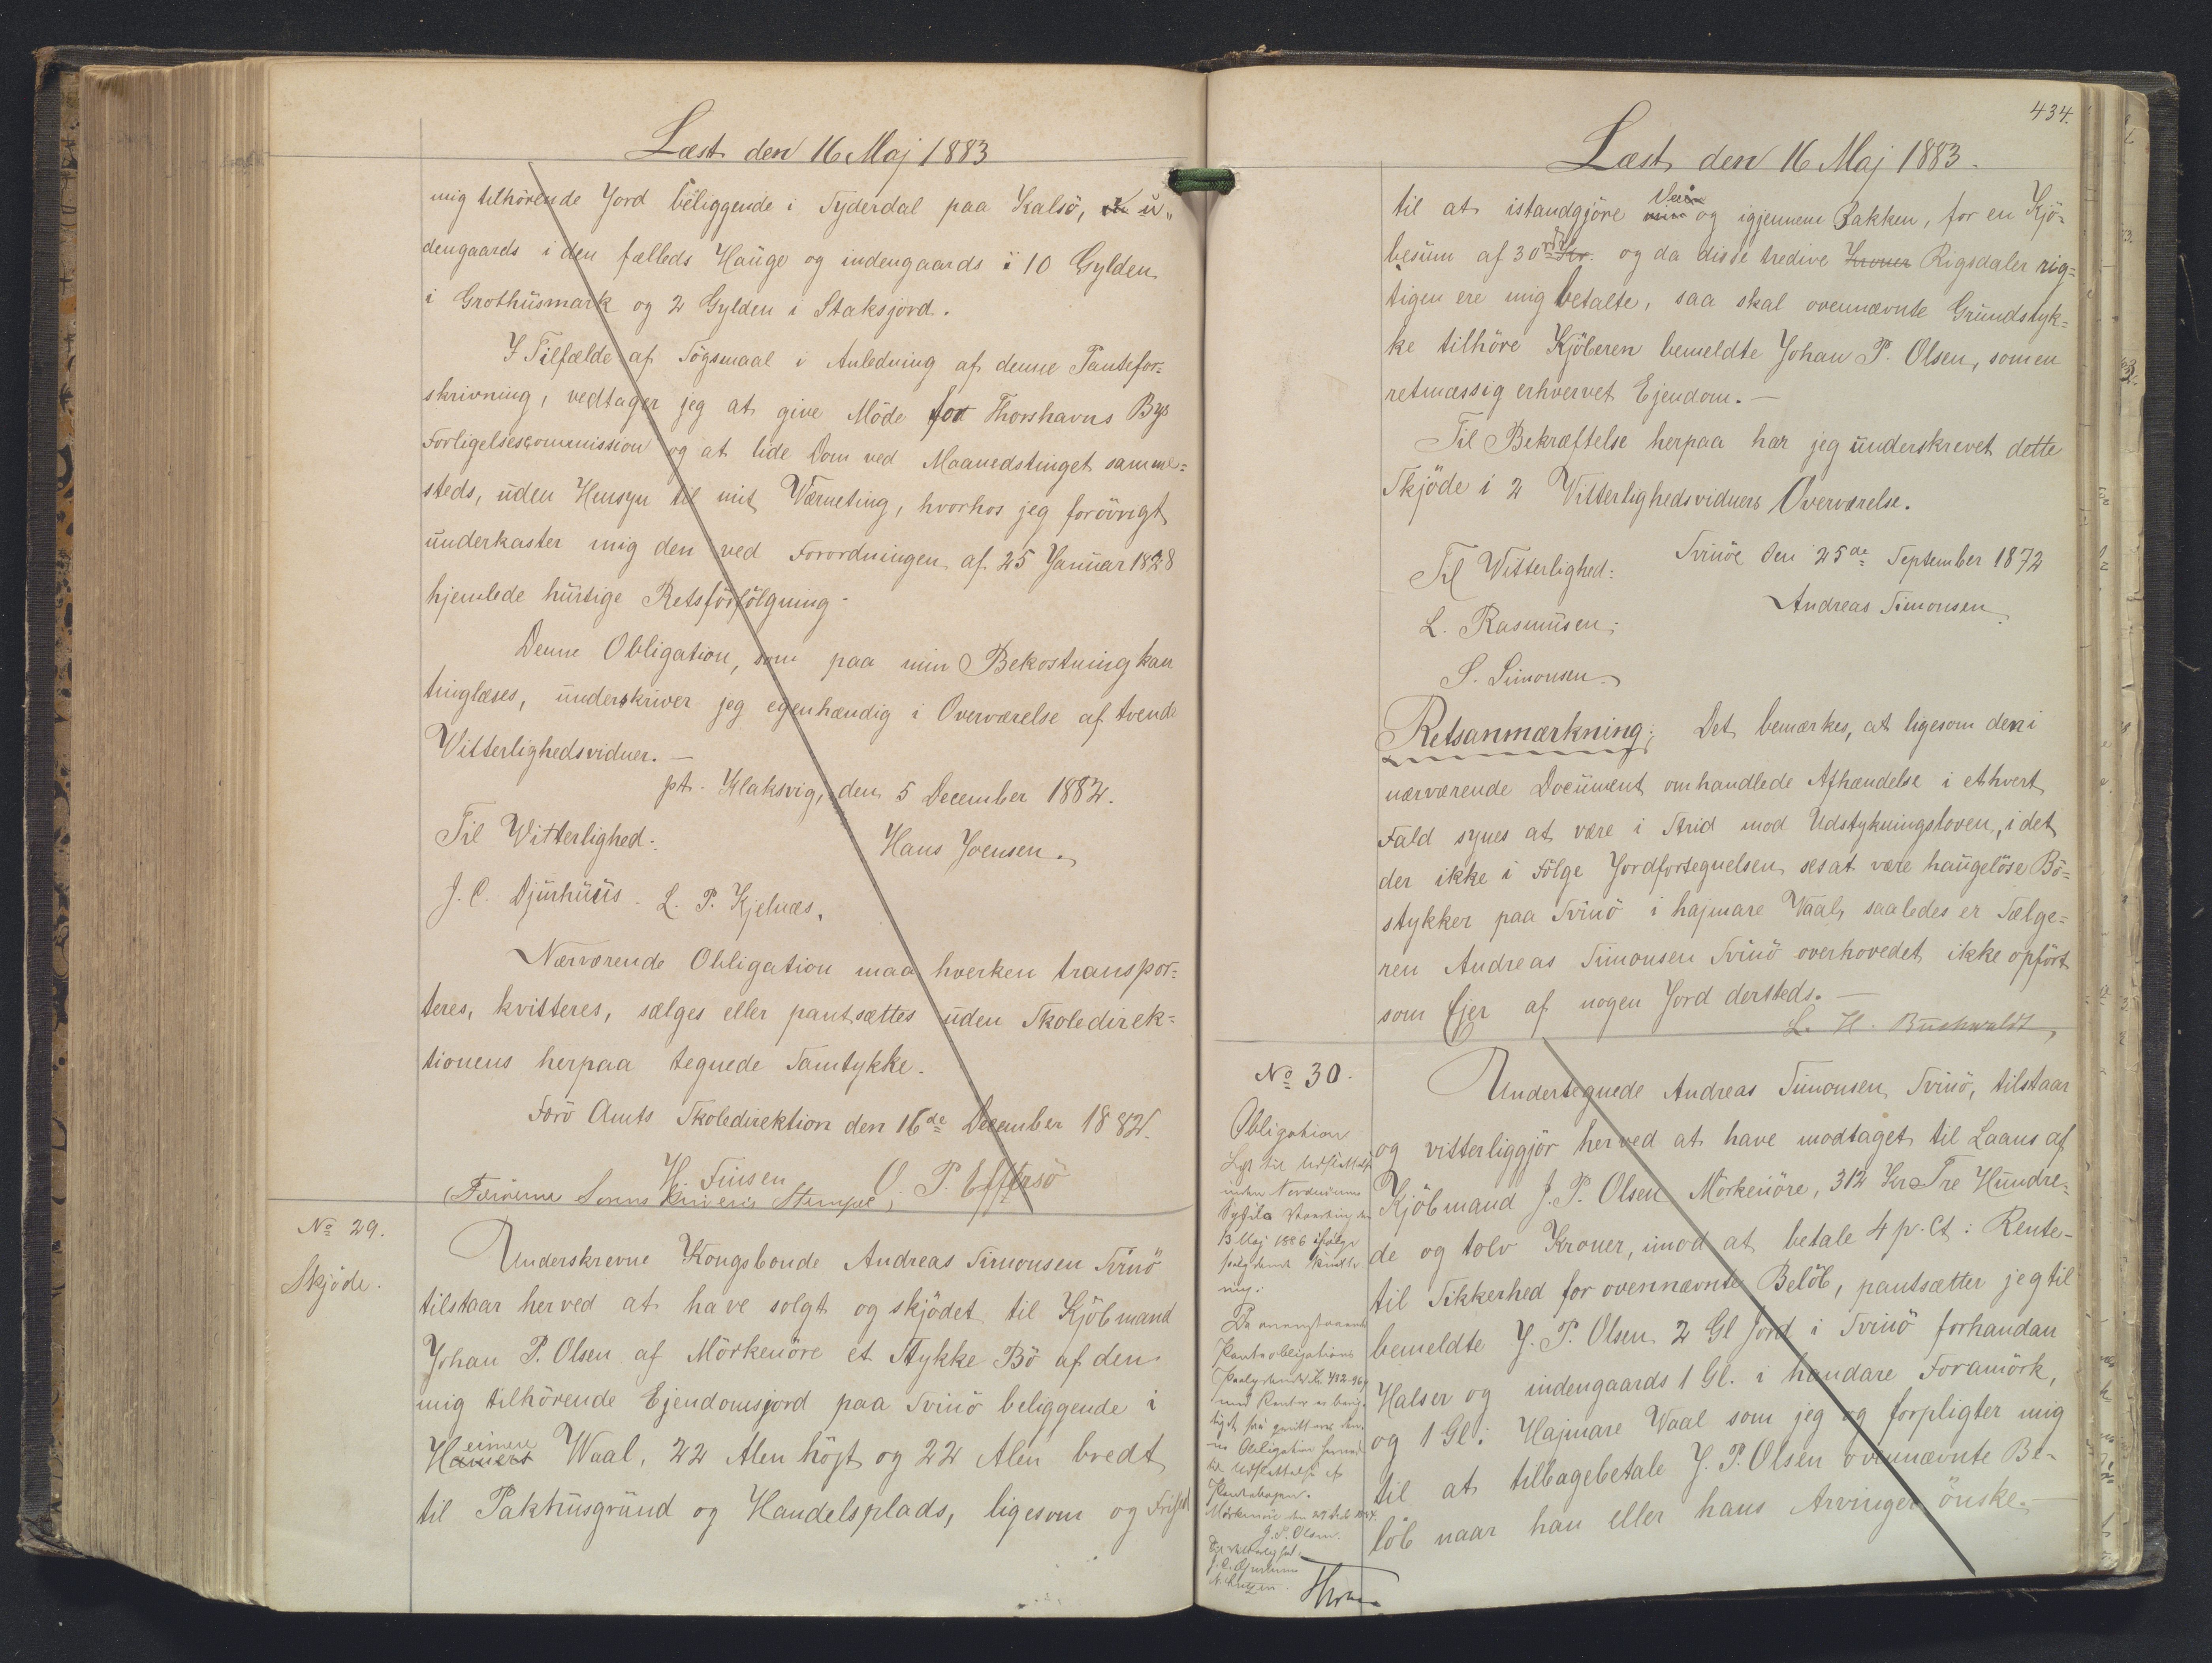 Læst den 16 Maj 1883
mig tilhørende Jord beliggende i Syderdal paa Kalsö, u„
dengaards i den fælleds Hauge og indengaards i 10 Gylden
i Grothüsmark og 2 Gylden i Staksjord.
I Tilfælde af Sögsmaal i Anledning af denne Pantefor=
skrivning, vedtager jeg at give Möde for Thorshavns Bys
Forligelsescommission og at lide Dom ved Maanedstinget samme=
steds, uden Hensyn til mit Værneting, hvorhos jeg forövrigt
underkaster mig den ved Forordningen af 25 Januar 1828
hjemlede hurtige Retsforfölgning.
Denne Obligation, som paa min Bekostning kan
tinglæses, underskriver jeg egenhændig i Overværelse af tvende
Vitterlighedsvidner. —
pt. Klaksvig, den 5 December 1882.
Til Vitterlighed: Hans Joensen.
J. C. Djurhuus. L. P. Kjelnæs.
Nærværende Obligation maa hverken transpor=
teres, kvitteres, sælges eller pantsættes uden Skoledirek=
tionens herpaa tegnede Samtykke.
Færö Amts Skoledirektion den 16de December 1882.
H. Finsen O. P. Effersö
Stempel
No 29.
Skjöde.
Underskrevne Kongsbonde Andreas Simonsen Svinö
tilstaar herved at have solgt og skjödet til Kjöbmand
Johan P. Olsen af Mörkenöre et Stykke Bö af den
mig tilhörende Ejendomsjord paa Svinö beliggende i
Heimere Waal, 22 Alen höjt og 22 Alen bredt
til Pakhusgrund og Handelsplads, ligesom og Frihed
434.
Læst den 16 Maj 1883.
til at istandgjöre Vei og igjennem Bakken, for en Kjö=
besum af 30 rd Kr. og da disse tredive Kroner Rigsdaler rig=
tigen ere mig betalte, saa skal ovennævnte Grundstyk=
ke tilhöre Kjöberen bemeldte Johan P. Olsen, som en
retmæssig erhvervet Ejendom. —
Til Bekræftelse herpaa har jeg underskrevet dette
Skjöde i 2 Vitterlighedsvidners Overværelse.
Svinöe den 25de September 1872
Til Vitterlighed: Andreas Simonsen
L. Rasmusen.
S. Simonsen.
Retsanmærkning: Det bemærkes, at ligesom den i
nærværende Document omhandlede Afhændelse i ethvert
Fald synes at være i Strid mod Udstykningsloven, idet
der ikke i Fölge Jordfortegnelsen ses at være haugelöse Bö=
stykker paa Svinö i hajmare Vaal, saaledes er Sælge=
ren Andreas Simonsen Svinö overhovedet ikke opfört
som Ejer af nogen Jord dersteds. —
L. H. Buchwaldt,
No 30.
Obligation
Læst til Udslettelse
inden Norderöernes
Syssels Vaarting den
13 Maj 1886 ifölge
Undertegnede Andreas Simonsen, Svinö, tilstaar
og vitterliggjör herved at have modtaget til Laans af
Kjöbmand J. P. Olsen Mörkenöre, 312 Kr Tre Hundre=
de og tolv Kroner, imod at betale 4 p. Ct: Rente-
til Sikkerhed for ovennævnte Belöb, pantsætter jeg til
bemeldte J. P. Olsen 2 Gl Jord i Svinö forhandan
Halser og indengaards 1 Gl. i handare Foramörk,
og 1 Gl: Hajmare Waal som jeg og forpligter mig
til at tilbagebetale J. P. Olsen ovennævnte Be-
löb naar han eller hans Arvinger önske.
Da
Pantobligations
med Renter
Obligation
Udslettelse af
Pantebogen.
J. P. Olsen.
Til Vitterlighed
J. C. Djurhuus